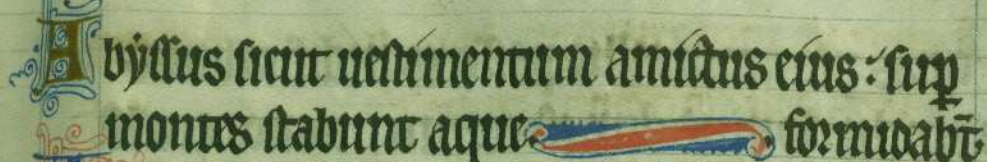 Abyssus sicut uestimentum amictus eius: sup̱
montes stabunt aque. formidab̅t